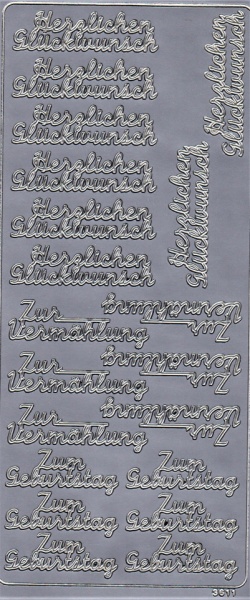 Herzlichen
Glückwunsch
Herzlichen
Glückwunsch
Herzlichen
Glückwunsch
Herzlichen
Glückwunsch
Herzlichen
Glückwunsch
Herzlichen
Glückwunsch
Herzlichen
Glückwunsch
Herzlichen
Glückwunsch
Zur
Vermählung
Zur
Vermählung
Zur
Vermählung
Zur
Vermählung
Zur
Vermählung
Zur
Vermählung
Zum
Geburtstag
Zum
Geburtstag
Zum
Geburtstag
Zum
Geburtstag
Zum
Geburtstag
Zum
Geburtstag
3611